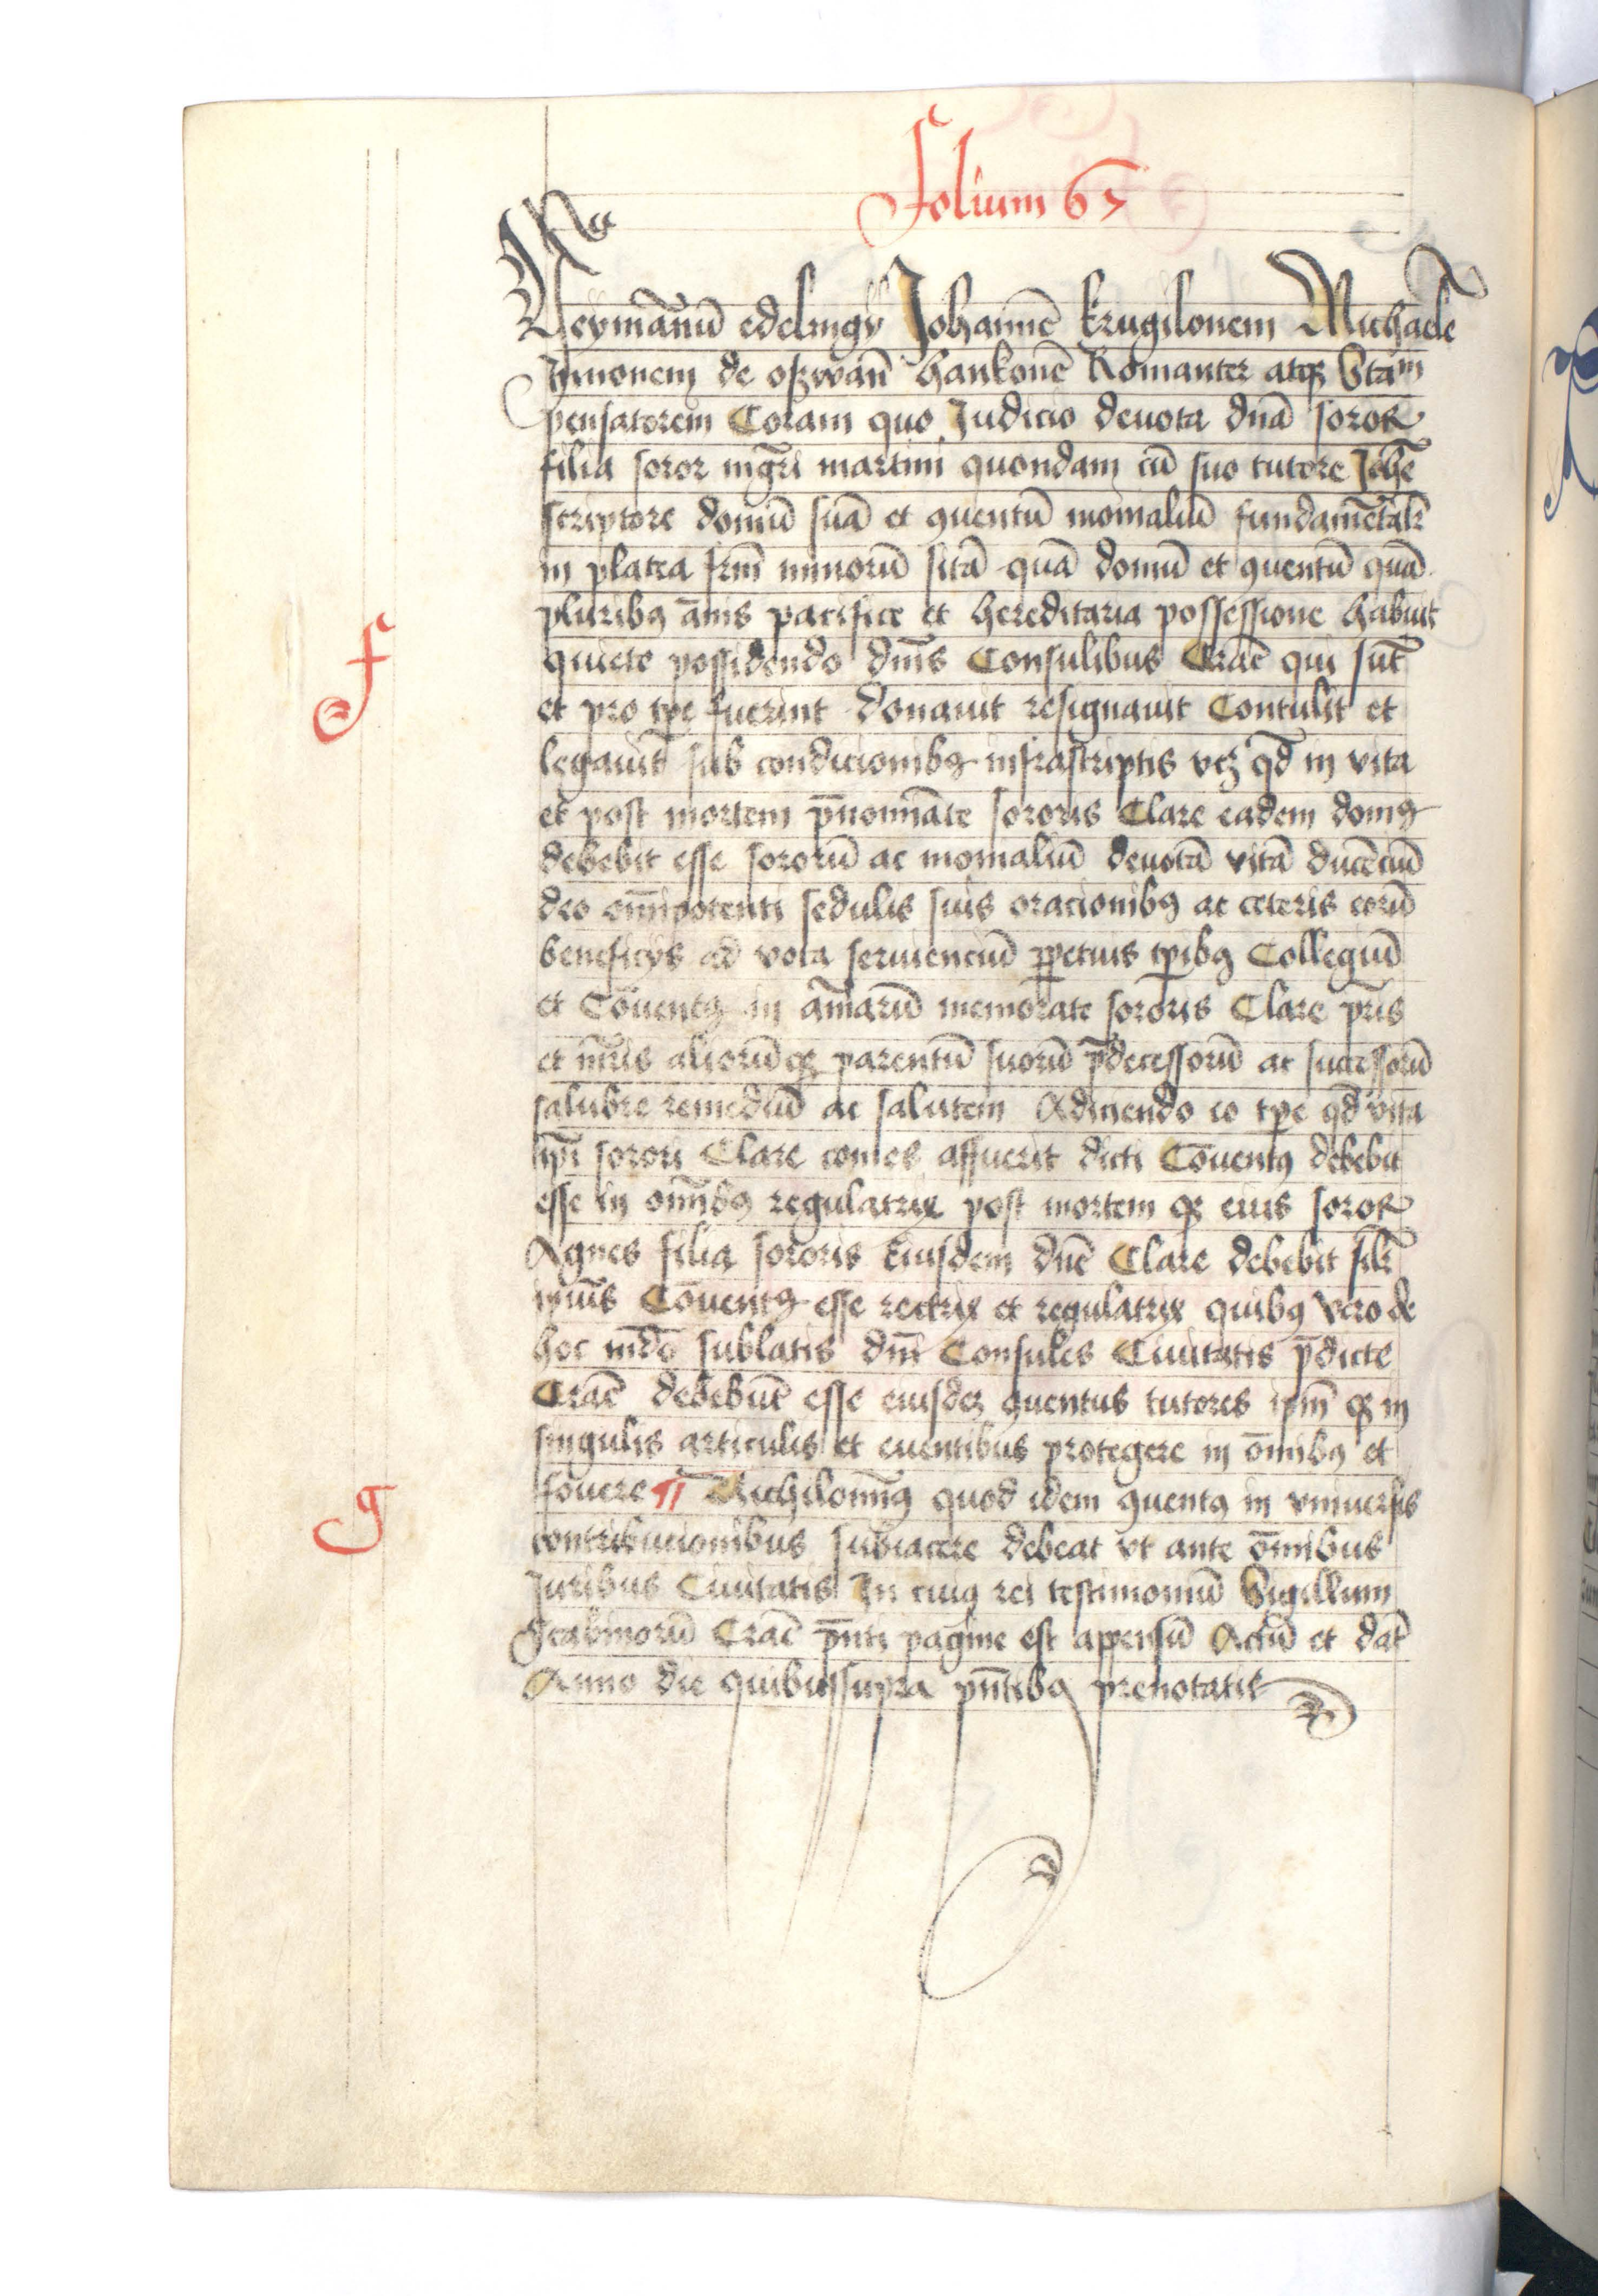 Folium 67
Neymānū edelingÿ Johannē krugilonem Michaelē
Hinconem de oszwān hankonē Romanter atqꝫ Stam
pensatorem Coram quo Judicio deuota dn̄a soror
filia soror mḡri martini quondam cū suo tutore Joh̄e
scriptore domū suā et ꝯuentū monialiū fundamētalr̄
in platea frm̄ minorū sitā quā domū et ꝯuentū quā
pluribꝰ ān̄is pacifice et hereditaria possessione habuit
quiete possidendo dn̄is Consulibus Crac̄ qui sūt
et pro tp̄e fuerint donauit resignauit Contulit et
legauit sub condicionibꝰ infrascriptis vcꝫ qd̄ in vita
et post mortem p̄nomīate sororis Clare eadem domꝰ
debebit esse sororū ac monialiū deuotā vitā ducēciū
deo om̄ipotenti sedulis suis oracionibꝰ ac ceteris eorū
beneficÿs ad vota seruienciū ꝑpetuis tp̄ibꝰ Collegiū
et Cōuentꝰ in aīarū memorate sororis Clare pr̄is
et mr̄is aliorūqꝫ parentū suorū p̄decessorū ac successorū
salubre remediū ac salutem Adiciendo eo tp̄e qd̄ vita
ip̄i sorori Clare comes affuerit dicti Cōuentꝰ debebit
esse in om̄ibꝰ regulatrix post mortem qꝫ eius soror
Agnes filia sororis Eiusdem dn̄e Clare debebit silr̄
ipiūs Cōuentꝰ esse rectrix et regulatrix quibꝰ vero de
hoc mūdo sublatis dn̄i Consules Ciuitatis p̄dicte
Crac̄ debebūt esse eiusdeꝫ ꝯuentus tutores ipm̄ qꝫ in
singulis articulis et euentibus protegere in ōmnibꝰ et
fouere ¶ Nichilominꝰ quod idem ꝯuentꝰ in vniuersis
contribucionibus subiacere debeat vt ante ōmnibus
Juribus Ciuitatis In cuiꝰ rei testimoniū Sigillum
Scabinorū Crac̄ p̄nti pagine est appensū Actū et dat̄
Anno die quibussupra pn̄tibꝰ prenotatis
f
g